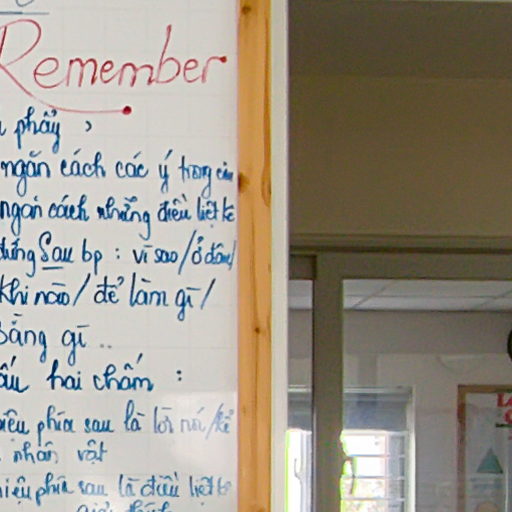 Remember
phẩy ,
ngăn cách các ý trong câu
ngăn cách những điều liệt kê
đứng sau bp : vì sao / ở đâu /
khi nào / để làm gì /
Bằng gì ..
hai chấm :
phía sau là lời nói / kể
nhân vật
hiệu phía sau là điều liệt kê